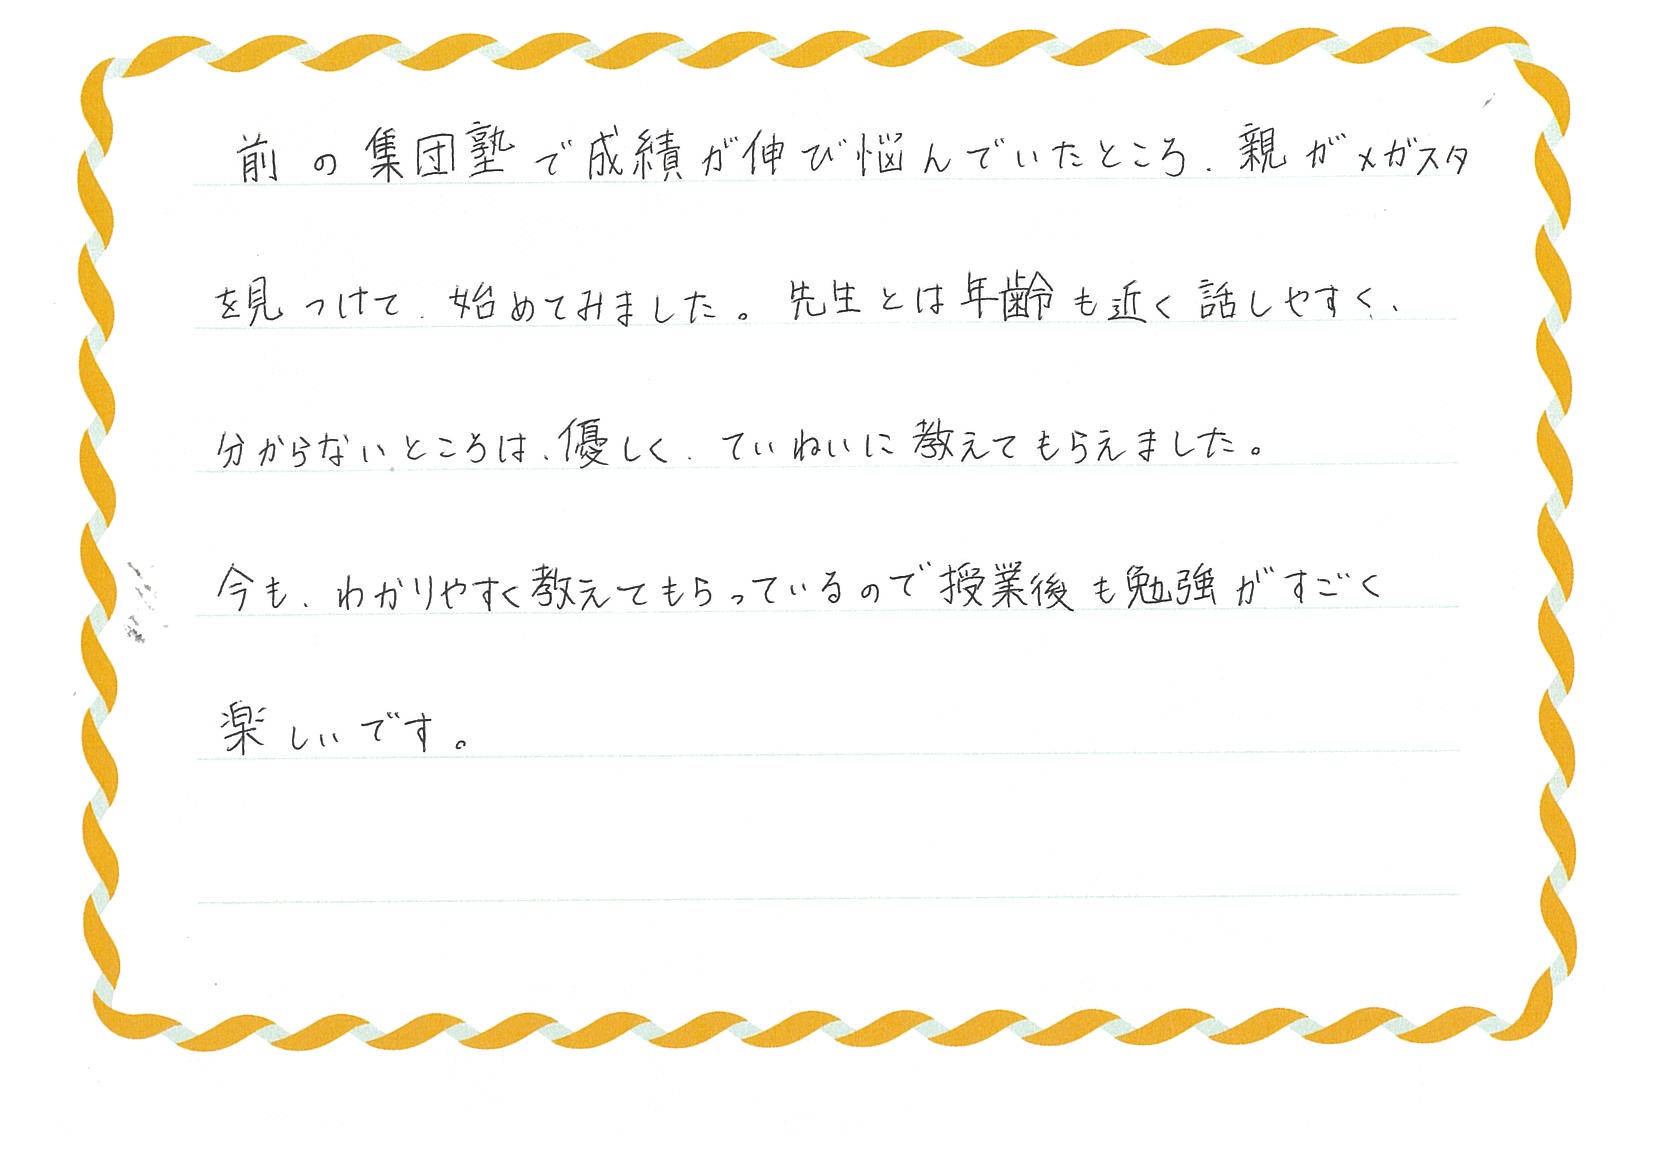 前の集団塾で成績が伸び悩んでいたところ、親がメガスタ
を見つけて、始めてみました。先生とは年齢も近く話しやすく、
分からないところは、優しく、ていねいに教えてもらえました。
今も、わかりやすく教えてもらっているので授業後も勉強がすごく
楽しいです。